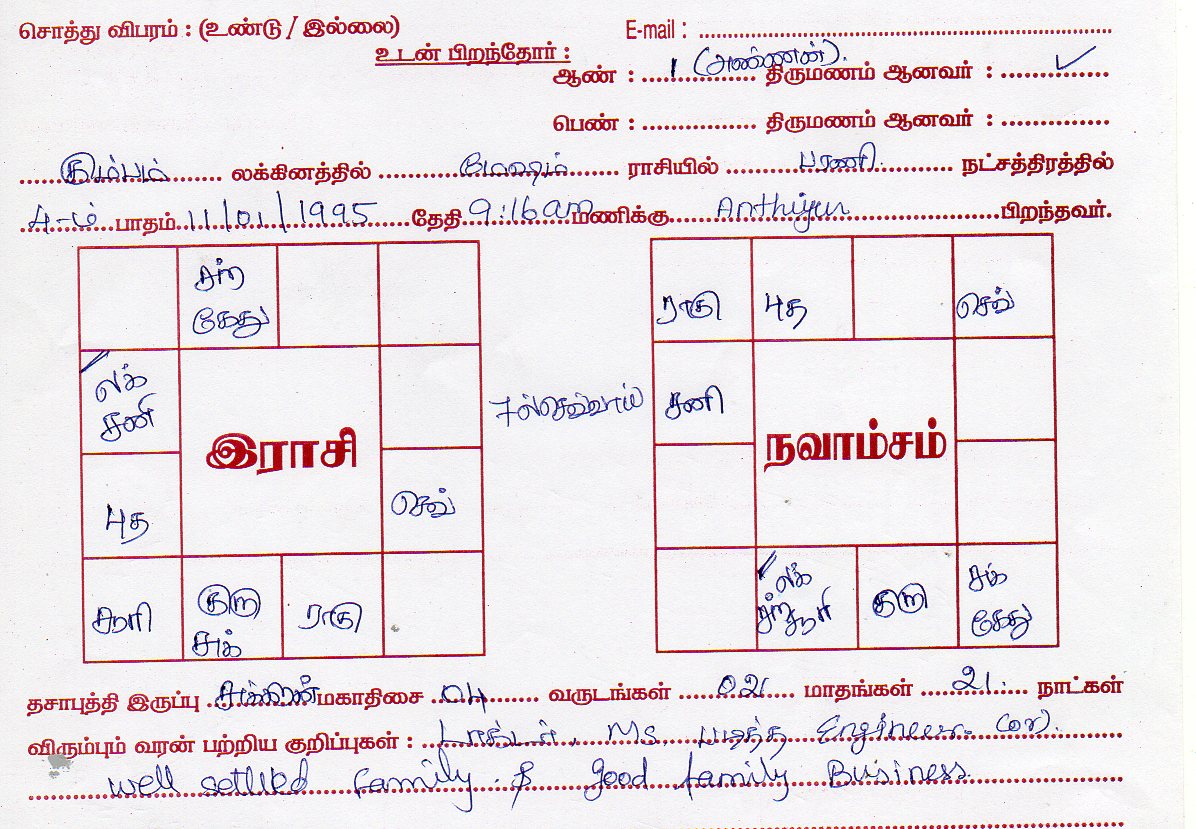 சொத்து விபரம் : (உண்டு / இல்லை) E-mail :
உடன் பிறந்தோர் :
ஆண் : 1 (அண்ணன்). திருமணம் ஆனவர் : ✓
பெண் : திருமணம் ஆனவர் :
கும்பம் லக்கினத்தில் மேஷம் ராசியில் பரணி. நட்சத்திரத்தில்
4-ம் பாதம் 11/01/1995 தேதி 9:16am மணிக்கு Anthiyur பிறந்தவர்.
சந்
கேது
லக்
சனி
புத
செவ்
சூரி
குரு
சுக்
ராகு
இராசி
7ல் செவ்வாய்
ராகு
புத
செவ்
சனி
நவாம்சம்
லக்
சந் சூரி
குரு
சுக்
கேது
தசாபுத்தி இருப்பு சுக்கிரன் மகாதிசை 04 வருடங்கள் 021 மாதங்கள் 21 நாட்கள்
விரும்பும் வரன் பற்றிய குறிப்புகள் : டாக்டர், Ms, படித்த Engineer. (or).
well settled family. & good family Business.